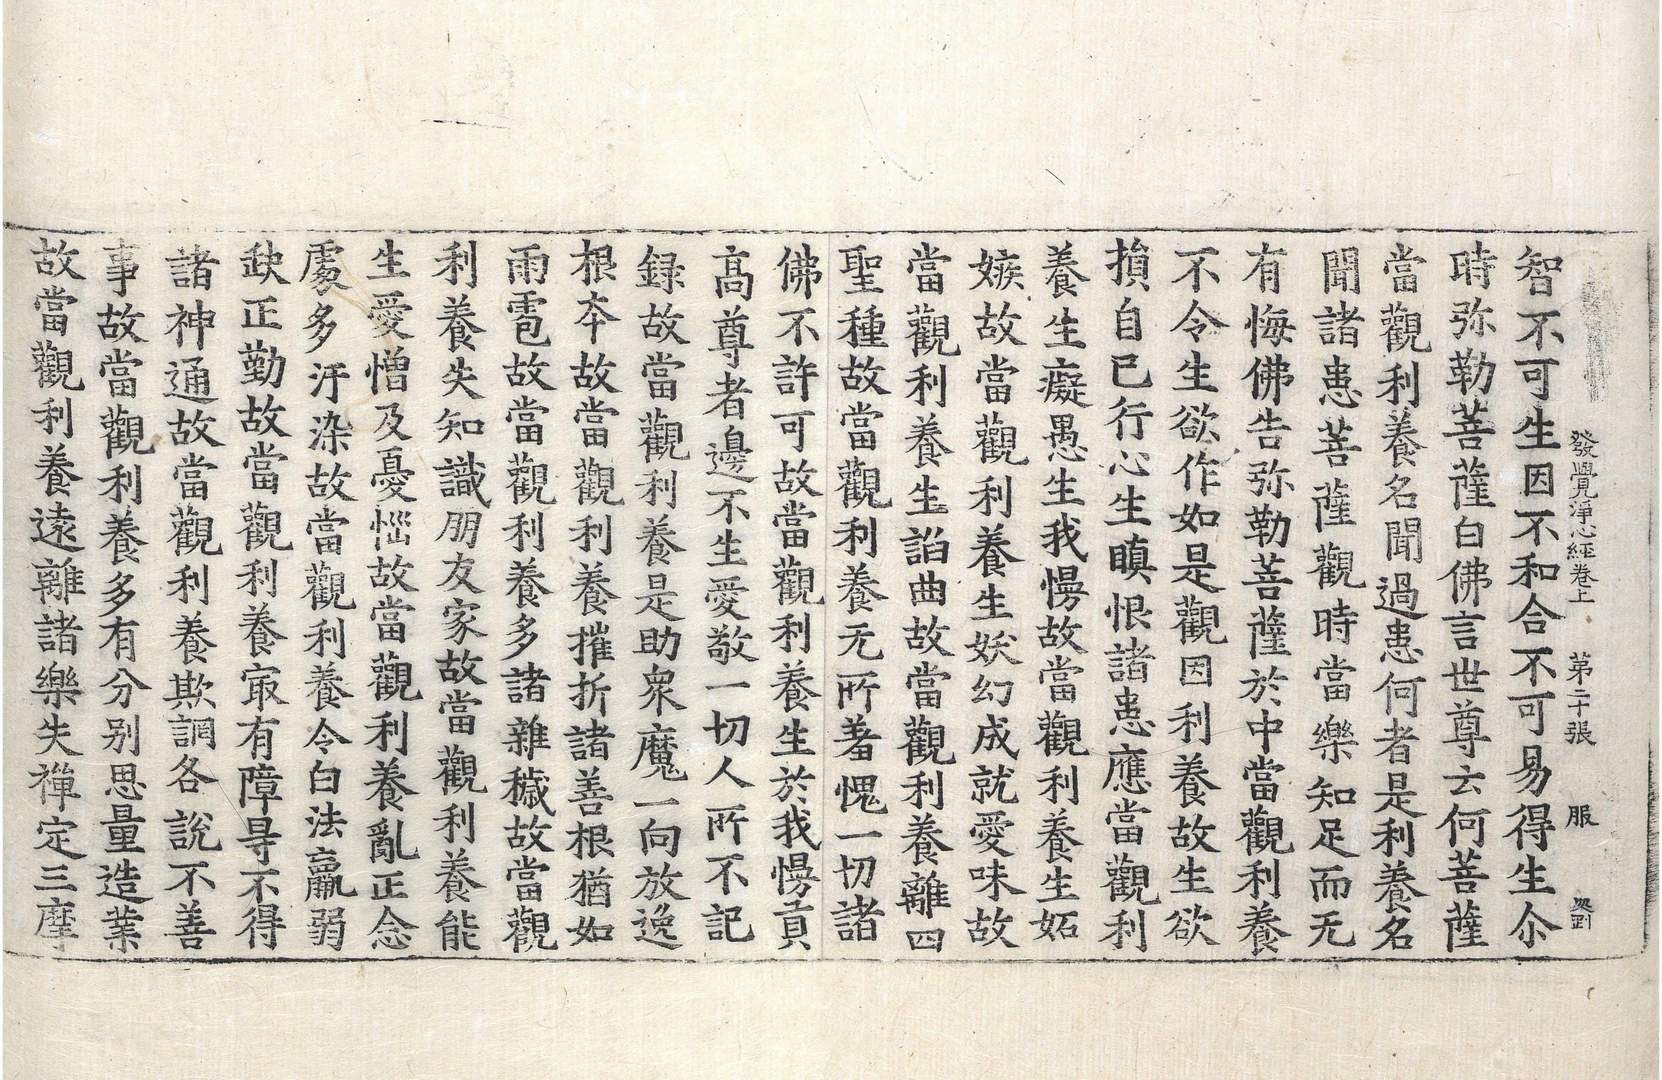 發覺淨心經卷上 第二十張 服
智不可生因不和合不可易得生尒
時弥勒菩薩白佛言世尊云何菩薩
當觀利養名聞過患何者是利養名
聞諸患菩薩觀時當樂知足而无
有悔佛告弥勒菩薩於中當觀利養
不令生欲作如是觀因利養故生欲
損自已行心生瞋恨諸患應當觀利
養生癡愚生我慢故當觀利養生妬
嫉故當觀利養生妖幻成就愛味故
當觀利養生諂曲故當觀利養離四
聖種故當觀利養无所著愧一切諸
佛不許可故當觀利養生於我慢貢
髙尊者邊不生愛敬一切人所不記
録故當觀利養是助衆魔一向放逸
根夲故當觀利養摧折諸善根猶如
雨雹故當觀利養多諸雜穢故當觀
利養失知識朋友家故當觀利養能
生愛憎及憂惱故當觀利養亂正念
處多汙染故當觀利養令白法羸弱
缺正勤故當觀利養㝡有障㝵不得
諸神通故當觀利養欺誷各說不善
事故當觀利養多有分别思量造業
故當觀利養遠離諸樂失禪定三摩